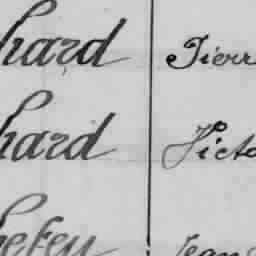 hard Pierr
hard Victo
hefeu Jean